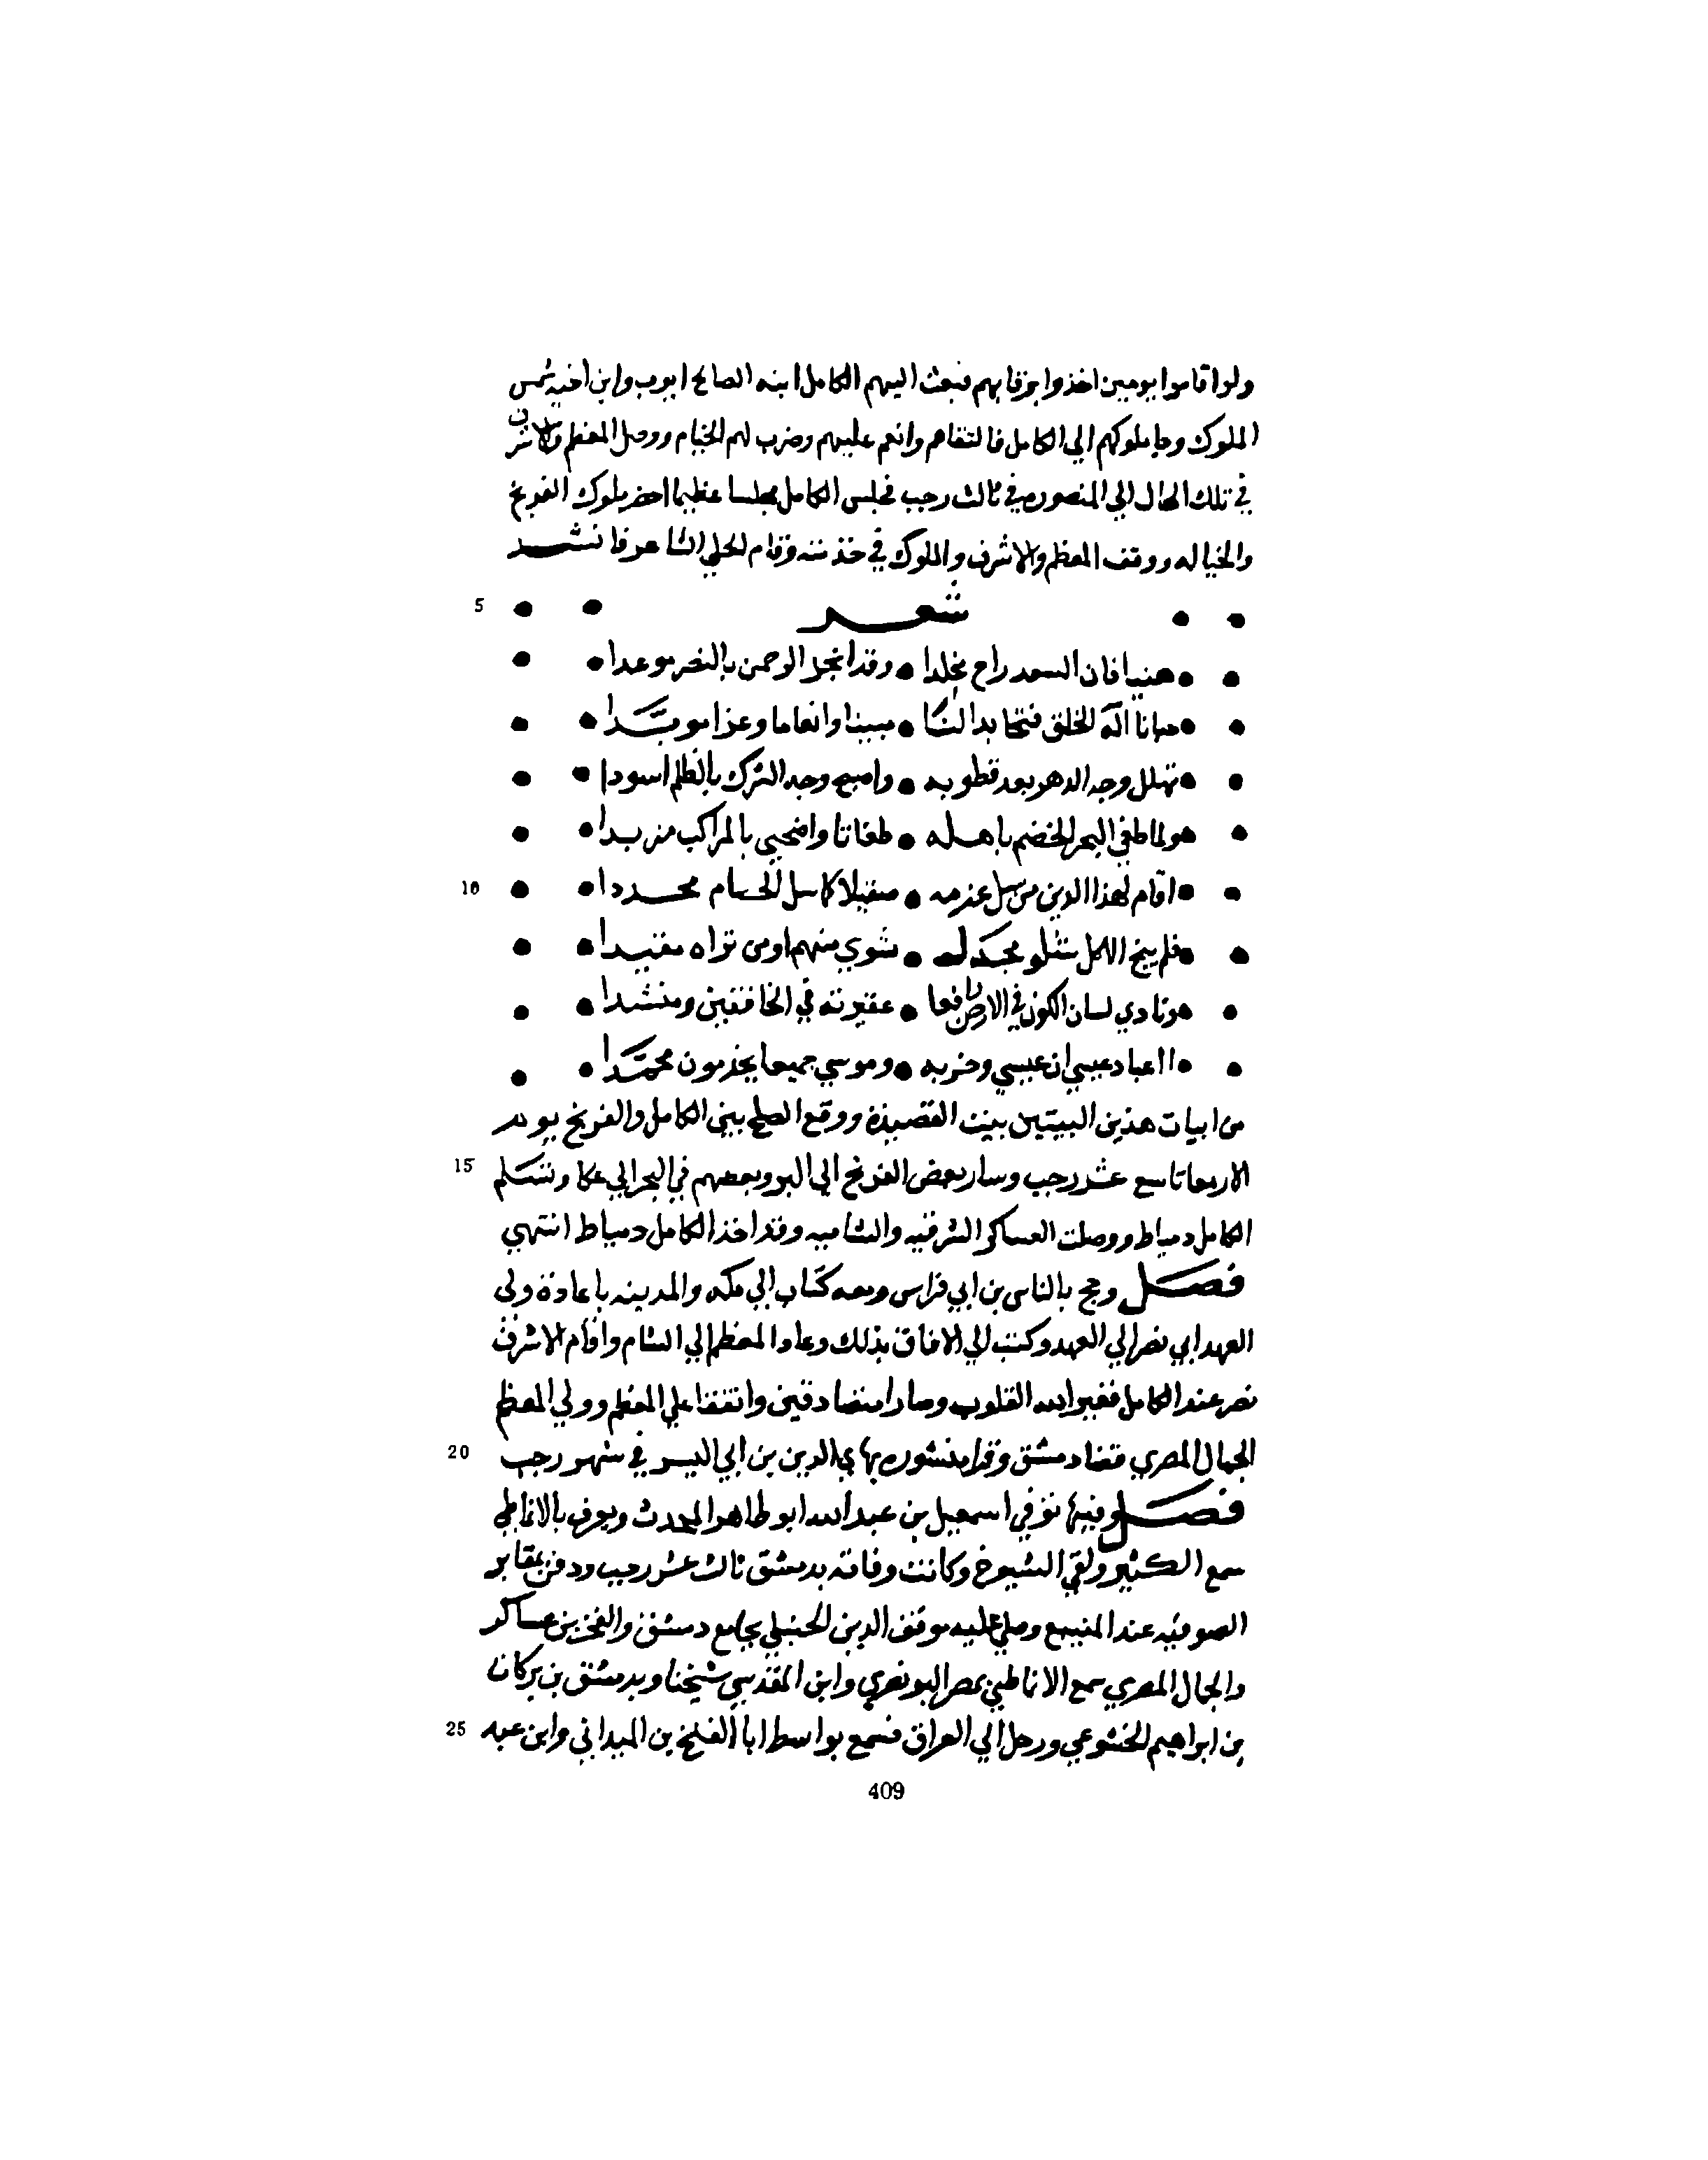 ولو اقاموا يومين اخذوا برقابهم فبعث اليهم الكامل ابنه الصالح ايوب وابن اخيه شمس
الملوك وجا ملوكهم الي الكامل فالتقاهم وانعم عليهم وضرب لهم الخيام ووصل المعظم والاشرف
في تلك الحال الي المنصوره في ثالث رجب فجلس الكامل مجلسا عظيما احضر ملوك الفرنج
والخياله ووقف المعظم والاشرف والملوك في خذمته وقام الحلي الشاعر فانشد
5 شعر
هنيا فان السعد راح مخلدا وقد انجز الرحمن بالنصر موعدا
حبانا اله الخلق فتحا بدا لنا مبينا وانعاما وعزا مويدا
تهلل وجه الدهر بعد قطوبه واصبح وجه الشرك بالظلم اسودا
ولما طغي البحر الخضم باهله طغاتا واضحي بالمراكب مزبدا
10 اقام لهذا الدين من سل عزمه صقيلا كما سل الحسام محددا
فلم ينج الا كل شلو مجدل ثوي منهم او من تراه مقيدا
ونادي لسان الكون في الارض رافعا عقيرته في الخافقين ومنشدا
اعباد عيسي ان عيسي وحزبه وموسي جميعا يخذمون محمدا
من ابيات هذين البيتين بيت القصيدة ووقع الصلح بين الكامل والفرنج يوم
15 الاربعا تاسع عشر رجب وسار بعض الفرنج الي البر وبعضهم في البحر الي عكا وتسلم
الكامل دمياط ووصلت العساكر الشرقيه والشاميه وقد اخذ الكامل دمياط انتهي
فصل وحج بالناس بن ابي فراس ومعه كتاب الي مكه والمدينه باعادة ولي
العهد ابي نصر الي العهد وكتب الي الافاق بذلك وعاد المعظم الي الشام واقام الاشرف
نصر عند الكامل فغير الله القلوب وصارا متصادقين واتفقا علي المعظم وولي المعظم
20 الجمال المصري قضا دمشق وقرا منشوره بها بن ابي اليسر في شهر رجب
فصل وفيها توفي اسمعيل بن عبد الله ابو طاهر المحدث ويعرف بالانماطي
سمع الكثير ولقي الشيوخ وكانت وفاته بدمشق ثالث عشر رجب ودفن بمقابر
الصوفيه عند المنيبع وصلي عليه موفق الدين الحنبلي بجامع دمشق والفخر بن عساكر
والجمال المصري سمع الانماطي بمصر البوصيري وابن المقدسي شيخنا وبدمشق بن بركات
25 بن ابراهيم الخشوعي ورحل الي العراق فسمع بواسط ابا الفتح بن الميداني وابن عبد
409